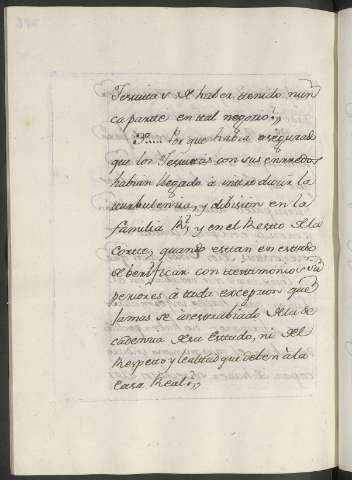 Jesuitas de haber tenido nun
ca parte en tal negocio.
3.º Por que había asegurado
que los Jesuitas con sus enrredos
habian llegado à introducir la
turbulencia, y dibision en la
familia Rl, y en el Resto de la
Corte, quando estan en estado
de berificar con testimonios su
periores à toda excepcion que
jamas se àn
cadencia de su Estado, ni del
Respecto y lealtad que deben à la
Casa Real.